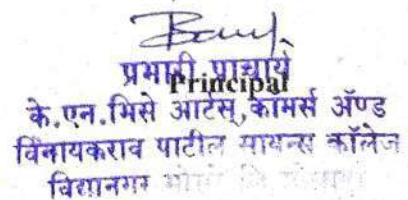 प्रभारी प्राचार्य
Principal
के.एन.भिसे आर्टस्,कॉमर्स ॲण्ड
विनायकराव पाटील सायन्स कॉलेज
विद्यानगर